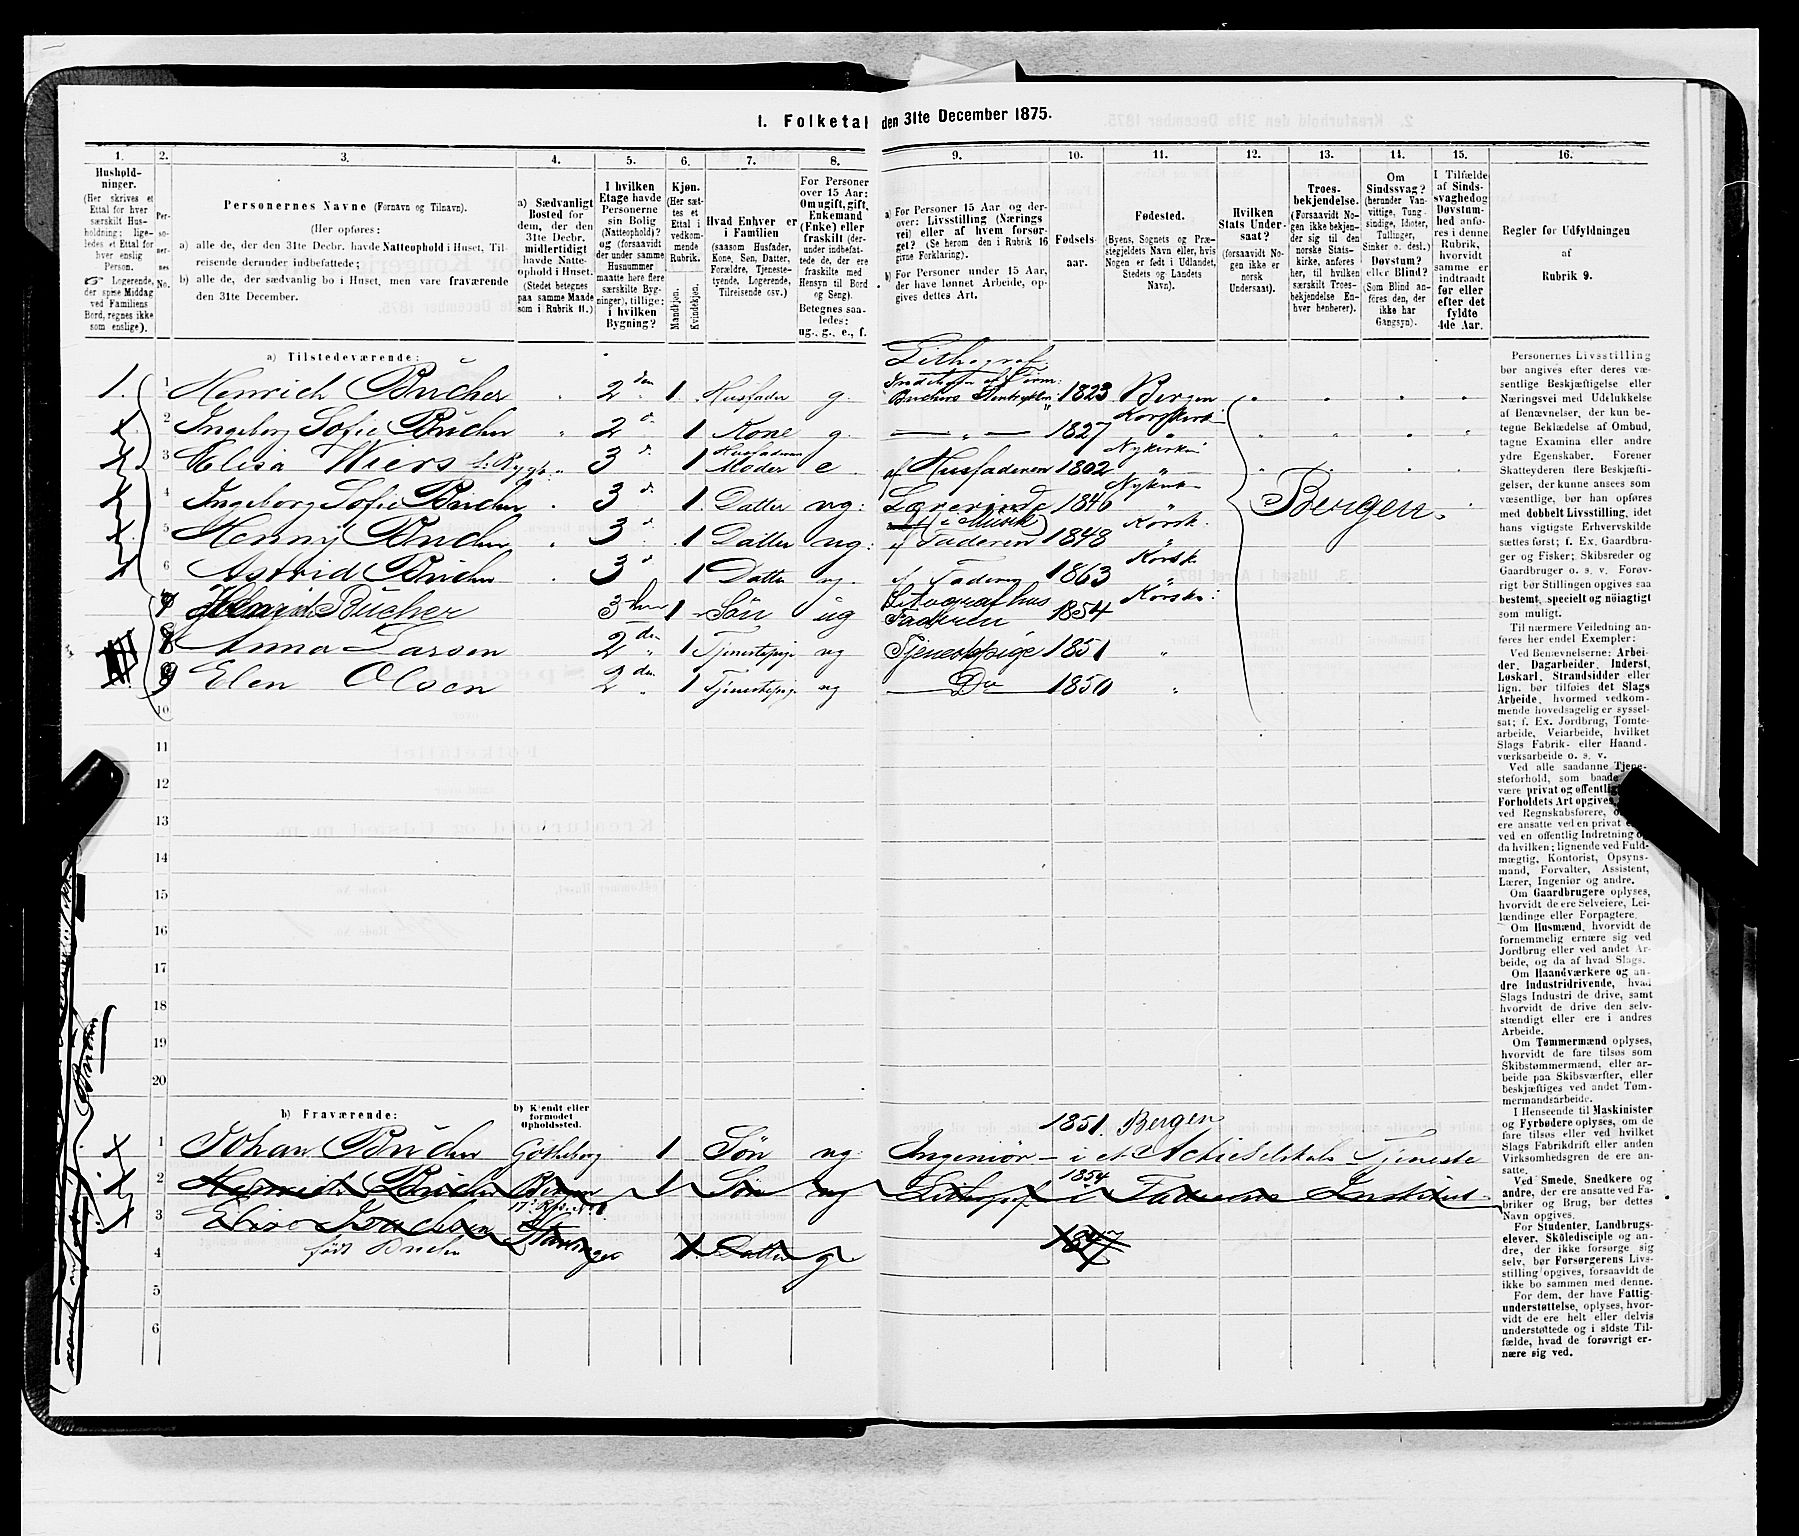 1. Folketal den 31te December 1875.
1.
Hushold-
ninger.
(Her skrives et
Ettal for hver
særskilt Hus-
holdning; lige-
ledes et Ettal for
hver enslig
Person.
Logerende,
der spise Middag
ved Familiens
Bord, regnes ikke
som enslige).
2.
Per-
so-
ner-
nes
No.
3.
Personernes Navne (Fornavn og Tilnavn).
(Her opføres:
a) alle de, der den 31te Decbr. havde Natteophold i Huset, Til-
reisende derunder indbefattede;
b) alle de, der sædvanlig bo i Huset, men vare fraværende
den 31te December.
4.
a) Sædvanligt
Bosted for
dem, der den
31te Decbr.
midlertidigt
havde Natte-
ophold i Huset.
(Stedet betegnes
paa samme Maade
som i Rubrik 11.)
5.
I hvilken
Etage havde
Personerne
sin Bolig
(Natteophold)?
og (forsaavidt
der under samme
Husnummer
maatte høre flere
særskilte Byg-
ninger), tillige:
i hvilken
Bygning?
6.
Kjøn.
(Her sæt-
tes et
Ettal i
vedkom-
mende
Rubrik.)
Mandkjøn.
Kvindekjøn.
7.
Hvad Enhver er
i Familien
(saasom Husfader,
Kone, Søn, Datter,
Forældre, Tjeneste-
tyende, Logerende,
Tilreisende osv.)
8.
For Personer
over 15 Aar:
Om ugift, gift,
Enkemand
(Enke) eller
fraskilt (der-
under indbefat-
tede de, der ere
fraskilte med
Hensyn til Bord
og Seng).
Betegnes saa-
ledes:
ug., g., e., f.
9.
a) For Personer 15 Aar og der-
over: Livsstilling (Nærings
vei) eller af hvem forsør-
get? (Se herom den i Rubrik 16
givne Forklaring).
b) For Personer under 15 Aar,
der have lønnet Arbeide, op-
gives dettes Art.
10.
Fødsels-
aar.
11.
Fødested.
(Byens, Sognets og Præ-
stegjeldets Navn eller, hvis
Nogen er født i Udlandet,
Stedets og Landets
Navn).
12.
Hvilken
Stats Under-
saat?
(forsaavidt No-
gen ikke er
norsk
Undersaat).
13.
Troes-
bekjendelse.
(Forsaavidt No-
gen ikke bekjen-
der sig til den
norske Stats-
kirke, anføres
her, til hvilken
særskilt Troes-
bekjendelse En-
hver henhører).
14.
Om
Sindssvag?
(herunder Van-
vittige, Tung-
sindige, Idioter,
Tullinger,
Sinker o. desl.)
Døvstum?
eller Blind?
(Som Blind an-
føres den, der
ikke har
Gangsyn).
15.
I Tilfælde
af Sinds-
svaghed og
Døvstum-
hed anfø-
res i denne
Rubrik,
hvorvidt
samme er
indtraadt
før eller
efter det
fyldte
4de Aar.
16.
Regler for Udfyldningen
af
Rubrik 9.
a) Tilstedeværende:
Lithograf
1. 1 Henrich Bucher 2den 1 Husfader g. 1823 Bergen
2 Ingeborg Sofie Bucher 2 d 1 Kone g. 1827 Korskirk
3 Elisa Wiers 3 d 1 Husfaderens Moder e af Husfaderen 1802 Nykirken
4 Ingeborg Sofie Bucher 3 d 1 Datter ug: Lærerinde i Musik 1846 Nykirk
Bergen
5 Henny Bucher 3 d 1 Datter ug: af Faderen 1848 Korsk:
6 Astrid Bucher 3 d 1 Datter ug. af Faderen 1863 Korsk
7 Henrich Bucher 3 1 Søn ug Litograf hos Faderen 1854 Korsk:
8 Anna Larsen 2den 1 Tjenestepige ug Tjenestepige 1851 "
9 Elen Olsen 2den 1 Tjenestepige ug Do 1850 "
10
11
12
13
14
15
16
17
18
19
20
b) Fraværende:
b) Kjendt eller
formodet
Opholdssted.
1851. Bergen
1 Johan Bucher Gøtheborg 1 Søn ug. Ingeniør - i et Actieselskabs Tjeneste
2 Henrich Bucher Bergen 1 Søn ug Lithograf i Faderens 1854
3 Elise
4 født Bucher Stavanger 1 Datter g 1847
5
6
Personernes Livsstilling
bør angives efter deres væ-
sentlige Beskjæftigelse eller
Næringsvei med Udelukkelse
af Benævnelser, der kun be-
tegne Beklædelse af Ombud,
tagne Examina eller andre
ydre Egenskaber. Forener
Skatteyderen flere Beskjæfti-
gelser, der kunne ansees som
væsentlige, bør han opføres
med dobbelt Livsstilling, idet
hans vigtigste Erhvervskilde
sættes først; f. Ex. Gaardbru-
ger og Fisker; Skibsreder og
Gaardbruger o. s. v. Forøv-
rigt bør Stillingen opgives saa
bestemt, specielt og nöiagtigt
som muligt.
Til nærmere Veiledning an-
føres her endel Exempler:
Ved Benævnelserne: Arbei-
der, Dagarbeider, Inderst,
Løskarl, Strandsidder eller
lign. bør tilføies det Slags
Arbeide, hvormed vedkom-
mende hovedsagelig er syssel-
sat; f. Ex. Jordbrug, Tomte-
arbeide, Veiarbeide, hvilket
Slags Fabrik- eller Haand-
værksarbeide o. s. v.
Ved alle saadanne Tjene-
steforhold, som baade
være privat og offentlig
Forholdets Art opgives
ved Regnskabsførere,
ere ansatte ved en privat
ved en offentlig Indretning
da hvilken; lignende ved Fuld-
mægtig, Kontorist, Opsyns-
mand, Forvalter, Assistent,
Lærer, Ingeniør og andre.
Om Gaardbrugere oplyses,
hvorvidt de ere Selveiere, Lei-
lændinge eller Forpagtere.
Om Husmænd, hvorvidt de
fornemmelig ernære sig ved
Jordbrug eller ved andet Ar-
beide, og da af hvad Slags.
Om Haandværkere og an-
dre Industridrivende, hvad
Slags Industri de drive, samt
hvorvidt de drive den selv-
stændigt eller ere i andres
Arbeide.
Om Tømmermænd oplyses,
hvorvidt de fare tilsøs som
Skibstømmermænd, eller ar-
beide paa Skibsværfter, eller
beskjæftiges ved andet Tøm-
mermandsarbeide.
I Henseende til Maskinister
og Fyrbødere oplyses, om de
fare tilsøs eller ved hvilket
Slags Fabrikdrift eller anden
Virksomhedsgren de ere an-
satte.
Ved Smede, Snedkere og
andre, der ere ansatte ved Fa-
briker og Brug, bør dettes
Navn opgives.
For Studenter, Landbrugs-
elever, Skôledisciple og an-
dre, der ikke forsørge sig
selv, bør Forsørgerens Livs-
stilling opgives, forsaavidt de
ikke bo sammen med denne.
For dem, der have Fattig-
understøttelse, oplyses, hvor-
vidt de ere helt eller delvis
understøttede og i sidste Til-
fælde, hvad de forøvrigt er-
nære sig ved.